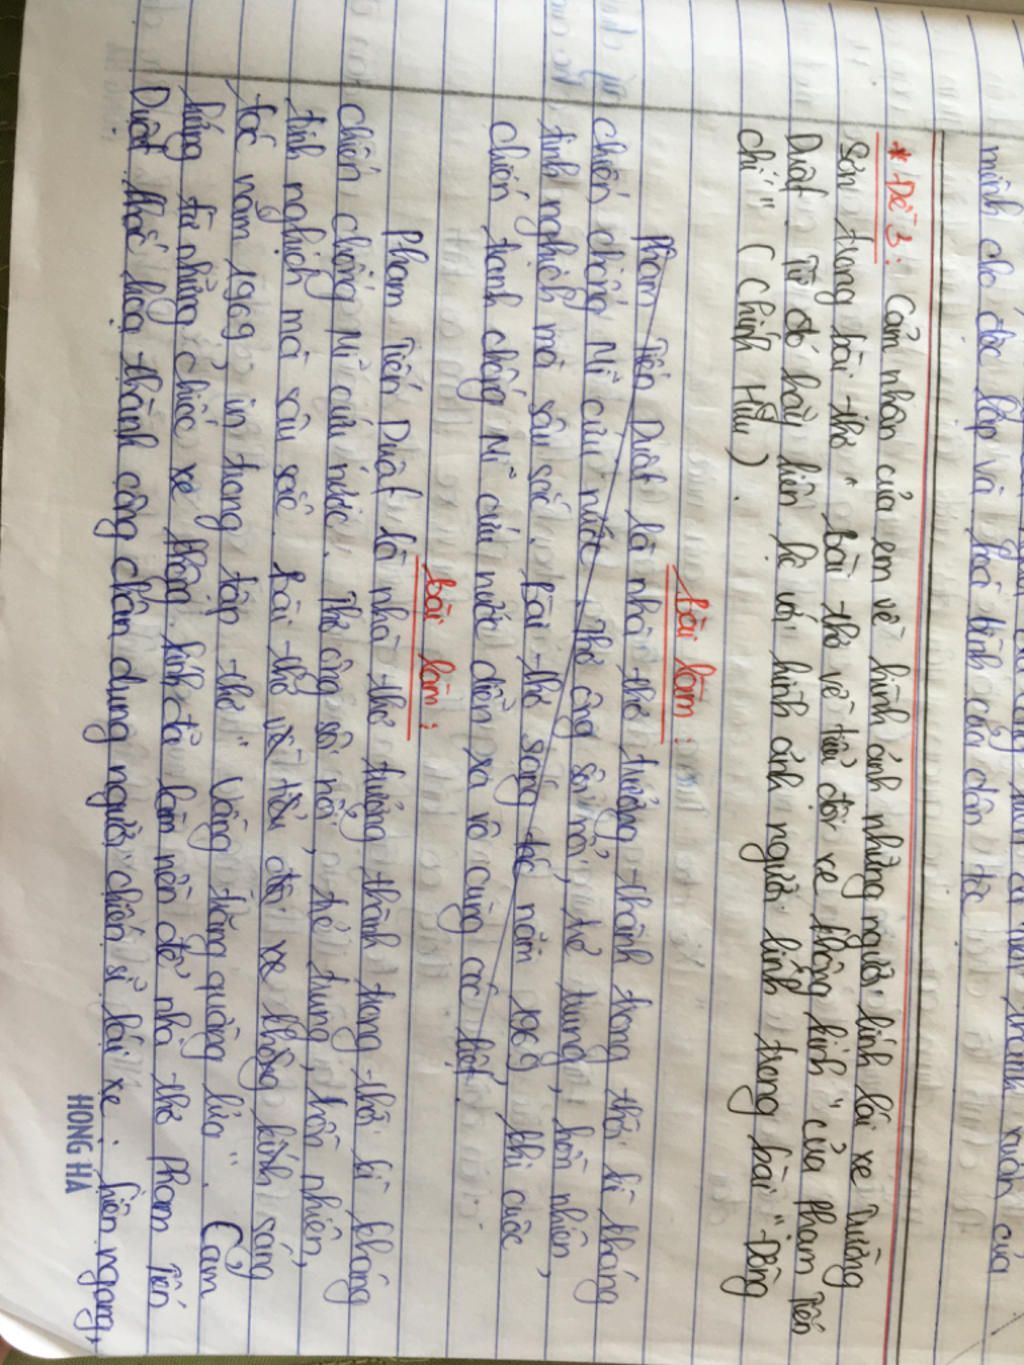 mình cho độc lập và hoà bình của dân tộc
* Đề 3: Cảm nhận của em về hình ảnh những người lính lái xe Trường
Sơn trong bài thơ " Bài thơ về tiểu đội xe không kính " của Phạm Tiến
Duật. Từ đó hãy liên hệ với hình ảnh người lính trong bài " Đồng
chí " ( Chính Hữu ).
Bài làm:
Phạm Tiến Duật là nhà thơ trưởng thành trong thời kì kháng
chiến chống Mĩ cứu nước. Thơ ông sôi nổi, trẻ trung, hồn nhiên,
tinh nghịch mà sâu sắc. Bài thơ sáng tác năm 1969 khi cuộc
chiến tranh chống Mĩ cứu nước diễn xa vô cùng ác liệt.
Bài làm:
Phạm Tiến Duật là nhà thơ trưởng thành trong thời kì kháng
chiến chống Mĩ cứu nước. Thơ ông sôi nổi, trẻ trung, hồn nhiên,
tinh nghịch mà sâu sắc. Bài thơ về tiểu đội xe không kính sáng
tác năm 1969, in trong tập thơ " Vầng trăng quầng lửa ". Cảm
hứng từ những chiếc xe không kính đã làm nền để nhà thơ Phạm Tiến
Duật khắc hoạ thành công chân dung người chiến sĩ lái xe: hiên ngang,
HONG HA